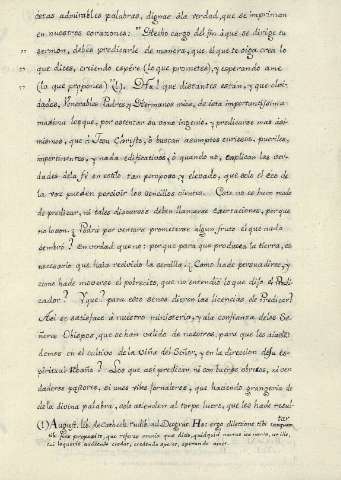 estas admirables palabras, dignas á la verdad, que se impriman
en nuestros corazones: "Hecho cargo del fin á que se dirige tu
sermon, debes predicarle de manera, que el que te oiga crea lo
que dices, creiendo espere (lo que prometes), y esperando ame
(lo que propones)"(1). Ha! que distantes estan, y que olvi-
dados, Venerables Padres y Hermanos mios, de esta importantissima
maxima los que, por ostentar su vano ingenio, y predicarse mas á sí
mismos, que á Jesu Christo, ó buscan asumptos curiosos, pueriles,
impertinentes, y nada edificativos; ó quando no, explican las ver-
dades de la fé en estilo tan pomposo, y elevado, que solo el eco de
la voz pueden percivir los sencillos oientes. Este no es buen modo
de predicar, ni tales discursos deben llamarse exortaciones, porque
no lo son. ¿Podrá por ventura prometerse algun fruto el que nada
sembró? En verdad que no: porque para que produzca la tierra, es
necesario que haia recivido la semilla. ¿Como ha de persuadirse, y
como ha de moverse el pobrecito, que no entendió lo que dijo el Predi-
cador? Y que? para esto se nos dieron las licencias de Predicar?
Asi se satisface á nuestro ministerio, y a la confianza de los Se-
ñores Obispos, que se han valido de nosotros, para que les aiude-
demos en el cultivo de la Viña del Señor, y en la direccion de su es-
piritual rebaño? Los que asi predican ni son buenos obreros, ni ver-
daderos pastores, si unos viles jornaleros, que haciendo grangeria de
de la divina palabra, solo atienden al torpe lucro, que les ha de resul
tar
(1) August. lib. de Cathech. rudib. ad Deograt. Hac ergo dilectione tibi tamquam
fine proposito, quo referas omnia quae dicis, quidquid narras ita narra, ut ille,
cui loqueris audiendo credat, credendo speret, sperando amet.